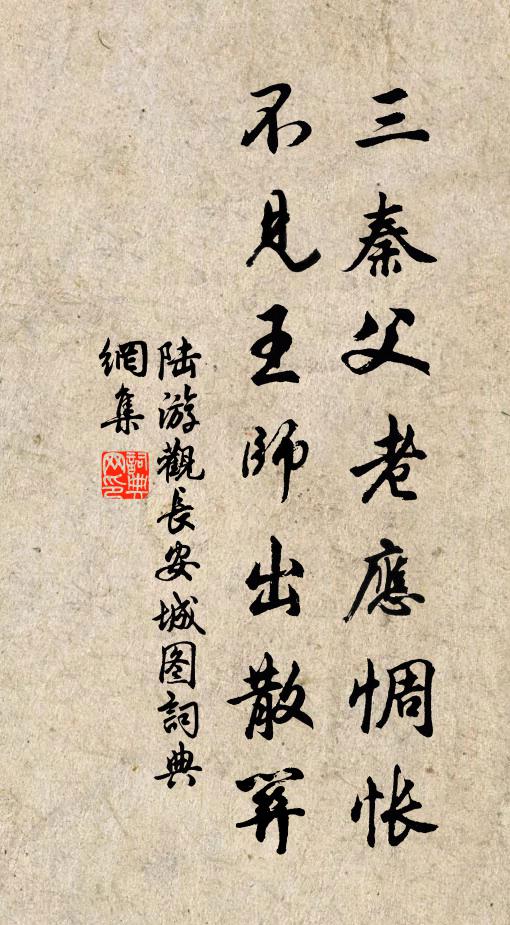 三秦父老應惆怅
不見王師出散關
陆游觀長安城图詞典
網集
詞典
网印